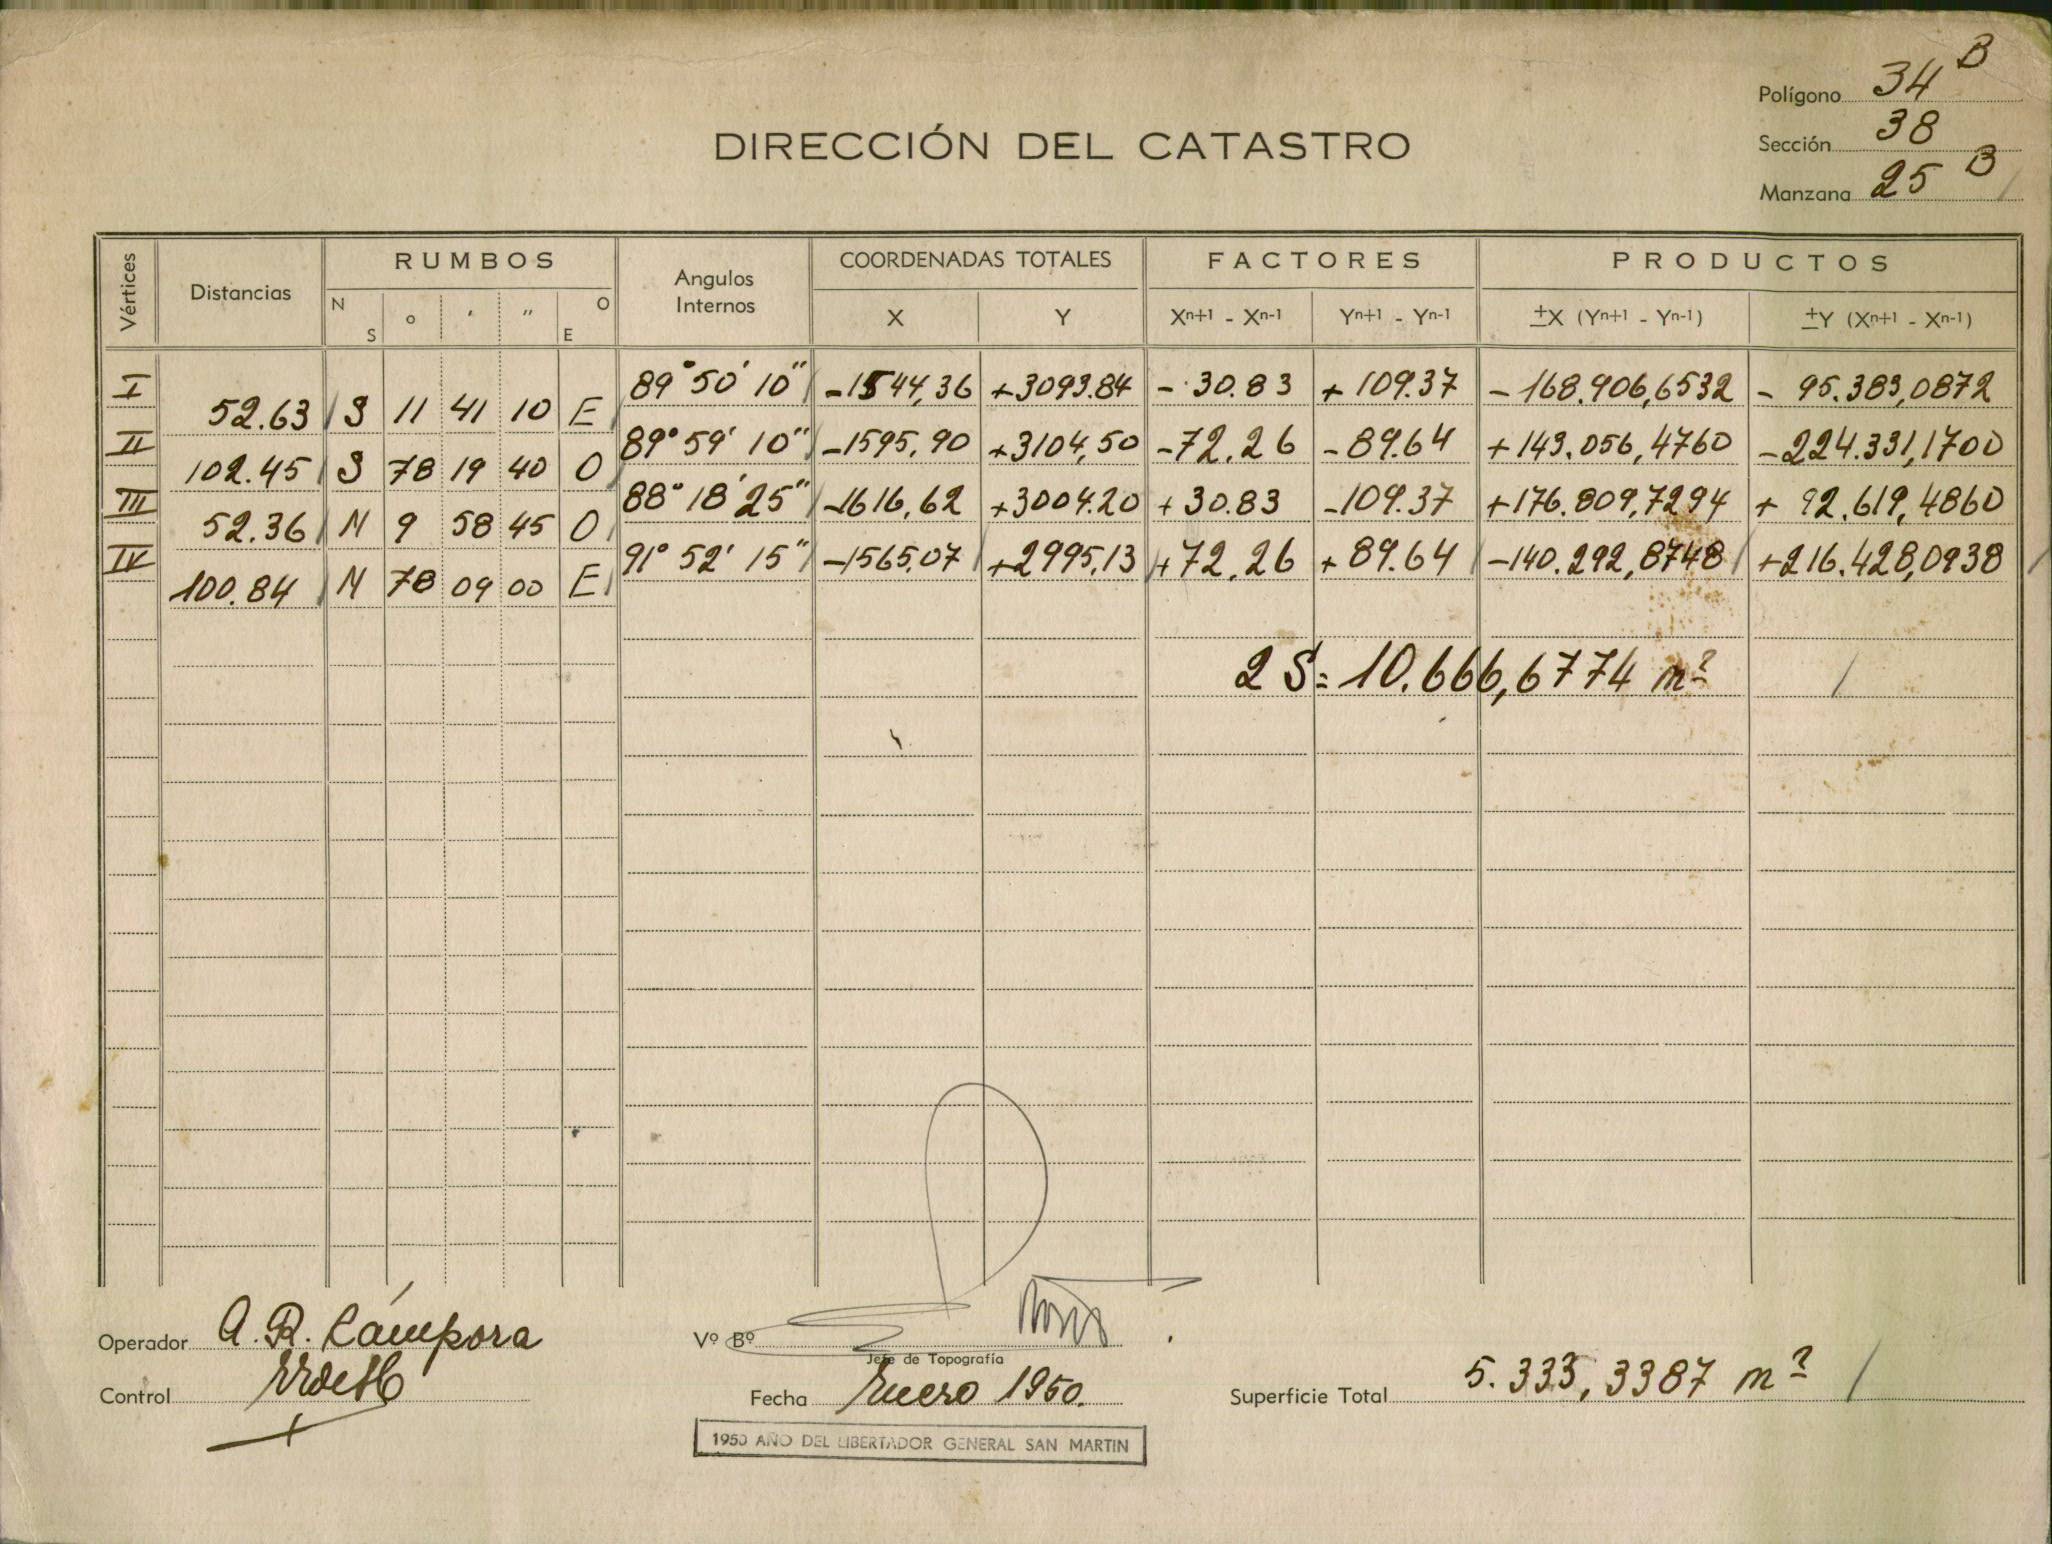 Polígono 34 B
Sección 38
Manzana 25 B
DIRECCIÓN DEL CATASTRO
Vértices Distancias RUMBOS Angulos Internos COORDENADAS TOTALES FACTORES PRODUCTOS
N S ° ' " O E X Y Xn+1 - Xn-1 Yn+1 - Yn-1 ±X (Yn+1 - Yn-1) ±Y (Xn+1 - Xn-1)
I 89° 50' 10" -1544,36 +3093.84 - 30.83 + 109.37 -168.906,6532 - 95.383,0872
52.63 S 11 41 10 E
II 89° 59' 10" -1595,90 +3104,50 -72.26 -89.64 +143.056,4760 -224.331,1700
102.45 S 78 19 40 O
III 88° 18' 25" -1616,62 +3004.20 + 30.83 -109.37 +176.809,7294 + 92.619,4860
52.36 N 9 58 45 O
IV 91° 52' 15" -1565,07 +2995,13 +72.26 + 89.64 -140.292,8748 +216.428,0938
100.84 N 78 09 00 E
2 S = 10.666,6774 m²
Operador A. R. Cámpora
Control
Vº Bº
Jefe de Topografía
Fecha Enero 1950.
Superficie Total 5.333,3387 m²
1950 AÑO DEL LIBERTADOR GENERAL SAN MARTIN